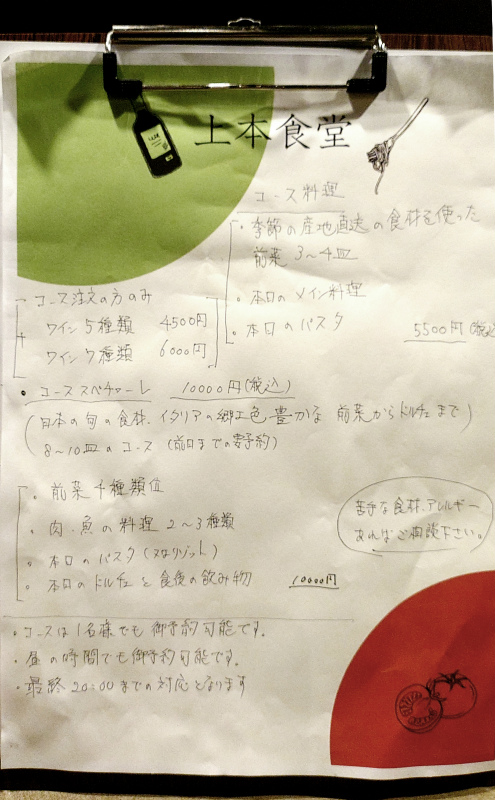 上本食堂
コース料理
・季節の産地直送の食材を使った
前菜 3〜4皿
・本日のメイン料理
・本日のパスタ
5500円(税込
コース注文の方のみ
ワイン5種類 4500円
ワイン7種類 6000円
・コーススペチャーレ 10000円(税込)
(日本の旬の食材、イタリアの郷土色豊かな 前菜からドルチェまで)
8〜10皿のコース (前日までの要予約)
・前菜 4種類位
・肉・魚の料理 2〜3種類
・本日のパスタ(又はリゾット)
・本日のドルチェと食後の飲み物 10000円
苦手な食材、アレルギー
あればご相談下さい。
・コースは1名様でも御予約可能です。
・昼の時間でも御予約可能です。
・最終20:00までの対応となります